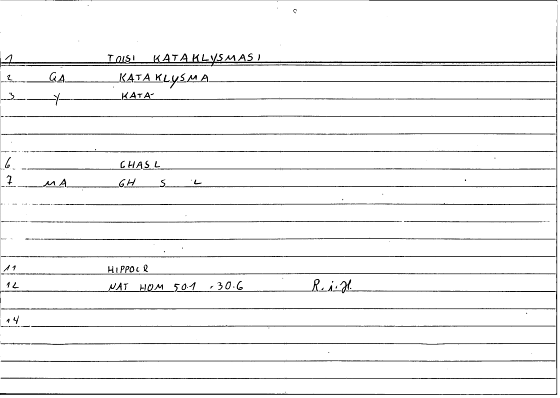 1 TOISI KATAKLYSMASI
2 GA KATAKLYSMA
3 Y KATA-
6 GHASL
7 MA GH S L
11 HIPPOCR
12 NAT HOM 50.1 30.6 R.i.H.
14